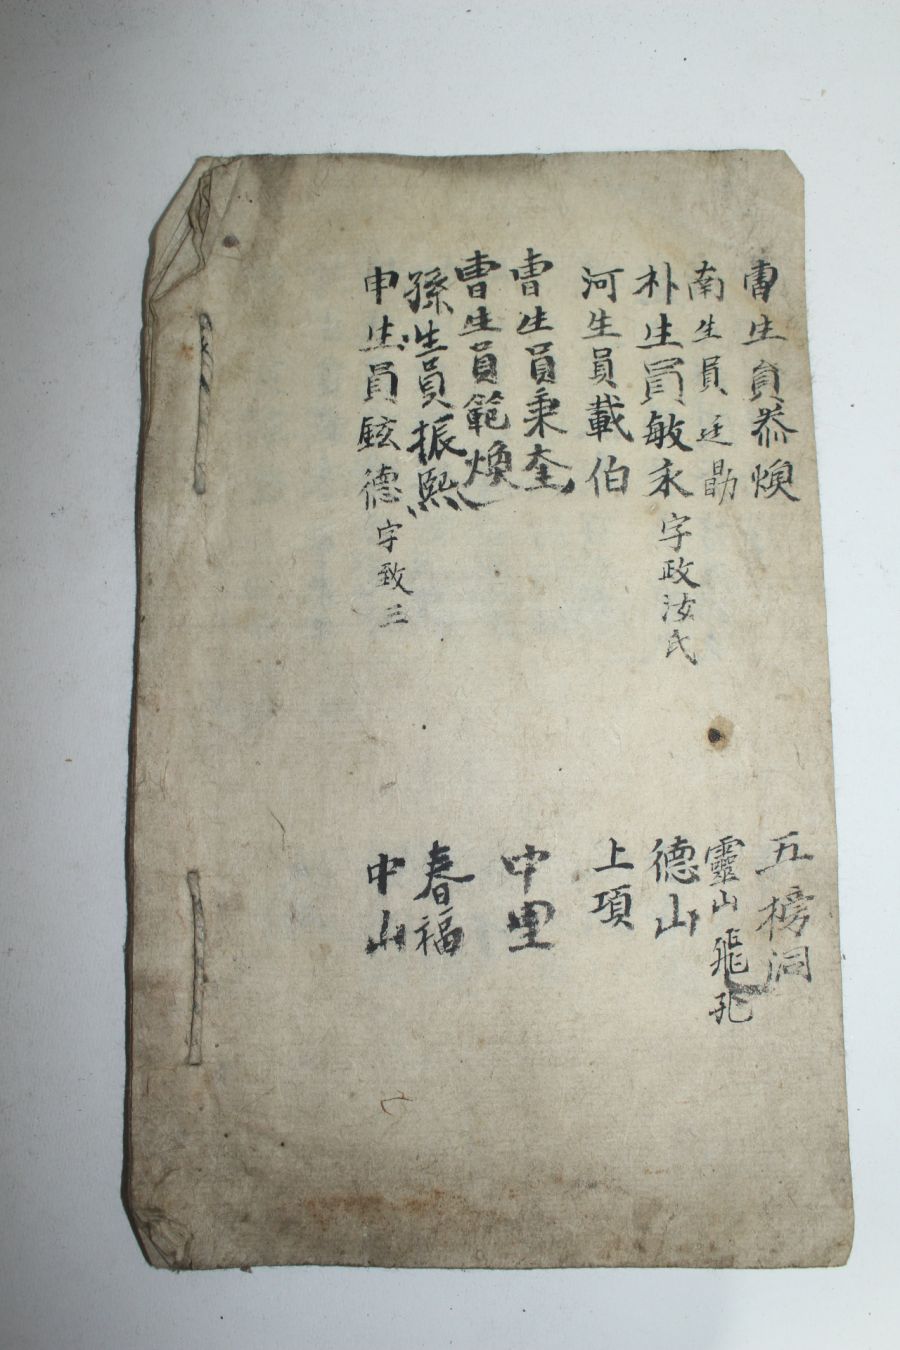 曺生員恭煥 五榜洞
南生員廷勖 靈山 飛孔
朴生員敏永 字政汝氏 德山
河生員載伯 上項
曺生員秉奎 中里
曺生員範煥
孫生員振熙 春福
申生員鉉德 字致三 中山